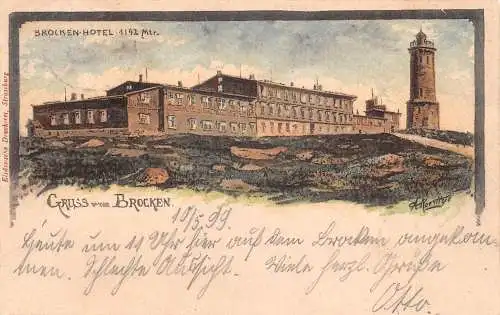 BROCKEN-HOTEL 1142 Mtr.
Elsässische Druckerei, Strassburg
GRUSS vom BROCKEN.
10/5 99
Heute um 11 Uhr hier auf dem Brocken angekom-
men. Schlechte Aussicht. Viele herzl. Grüße
Otto.